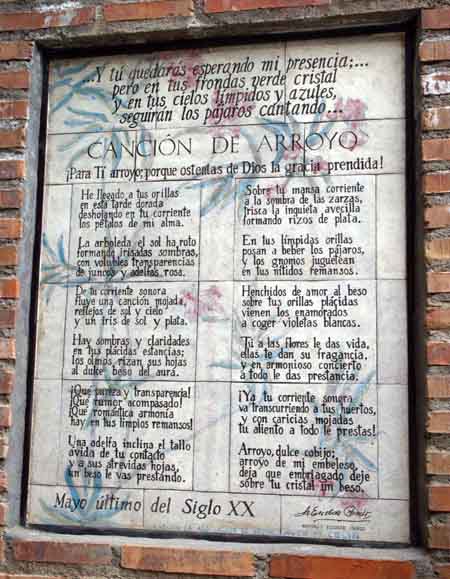 ...Y tú quedarás esperando mi presencia;...
pero en tus frondas verde cristal
y en tus cielos límpidos y azules,
seguirán los pájaros cantando...
CANCIÓN DE ARROYO
¡Para Tí arroyo; porque ostentas de Dios la gracia prendida!
He llegado a tus orillas
en esta tarde dorada
deshojando en tu corriente
los pétalos de mi alma.
La arboleda el sol ha roto
formando irisadas sombras,
con volubles transparencias
de juncos y adelfas rosa.
De tu corriente sonora
fluye una canción mojada,
reflejos de sol y cielo
y un iris de sol y plata.
Hay sombras y claridades
en tus plácidas estancias;
los olmos, rizan sus hojas
al dulce beso del aura.
¡Qué pureza y transparencia!
¡Qué rumor acompasado!
¡Qué romántica armonía
hay en tus limpios remansos!
Una adelfa inclina el tallo
ávida de tu contacto
y a sus atrevidas hojas,
un beso le vas prestando.
Sobre tu mansa corriente
a la sombra de las zarzas,
trisca la inquieta avecilla
formando rizos de plata.
En tus límpidas orillas
posan a beber los pájaros,
y los gnomos juguetean
en tus nítidos remansos.
Henchidos de amor al beso
sobre tus orillas plácidas
vienen los enamorados
a coger violetas blancas.
Tú a las flores le das vida,
ellas le dan su fragancia,
y en armonioso concierto
a todo le das prestancia.
¡Ya tu corriente sonora
va transcurriendo a tus huertos,
y con caricias mojadas
tu aliento a todo le prestas!
Arroyo, dulce cobijo;
arroyo de mi embeleso,
deja que embriagado deje
sobre tu cristal un beso.
Mayo último del Siglo XX